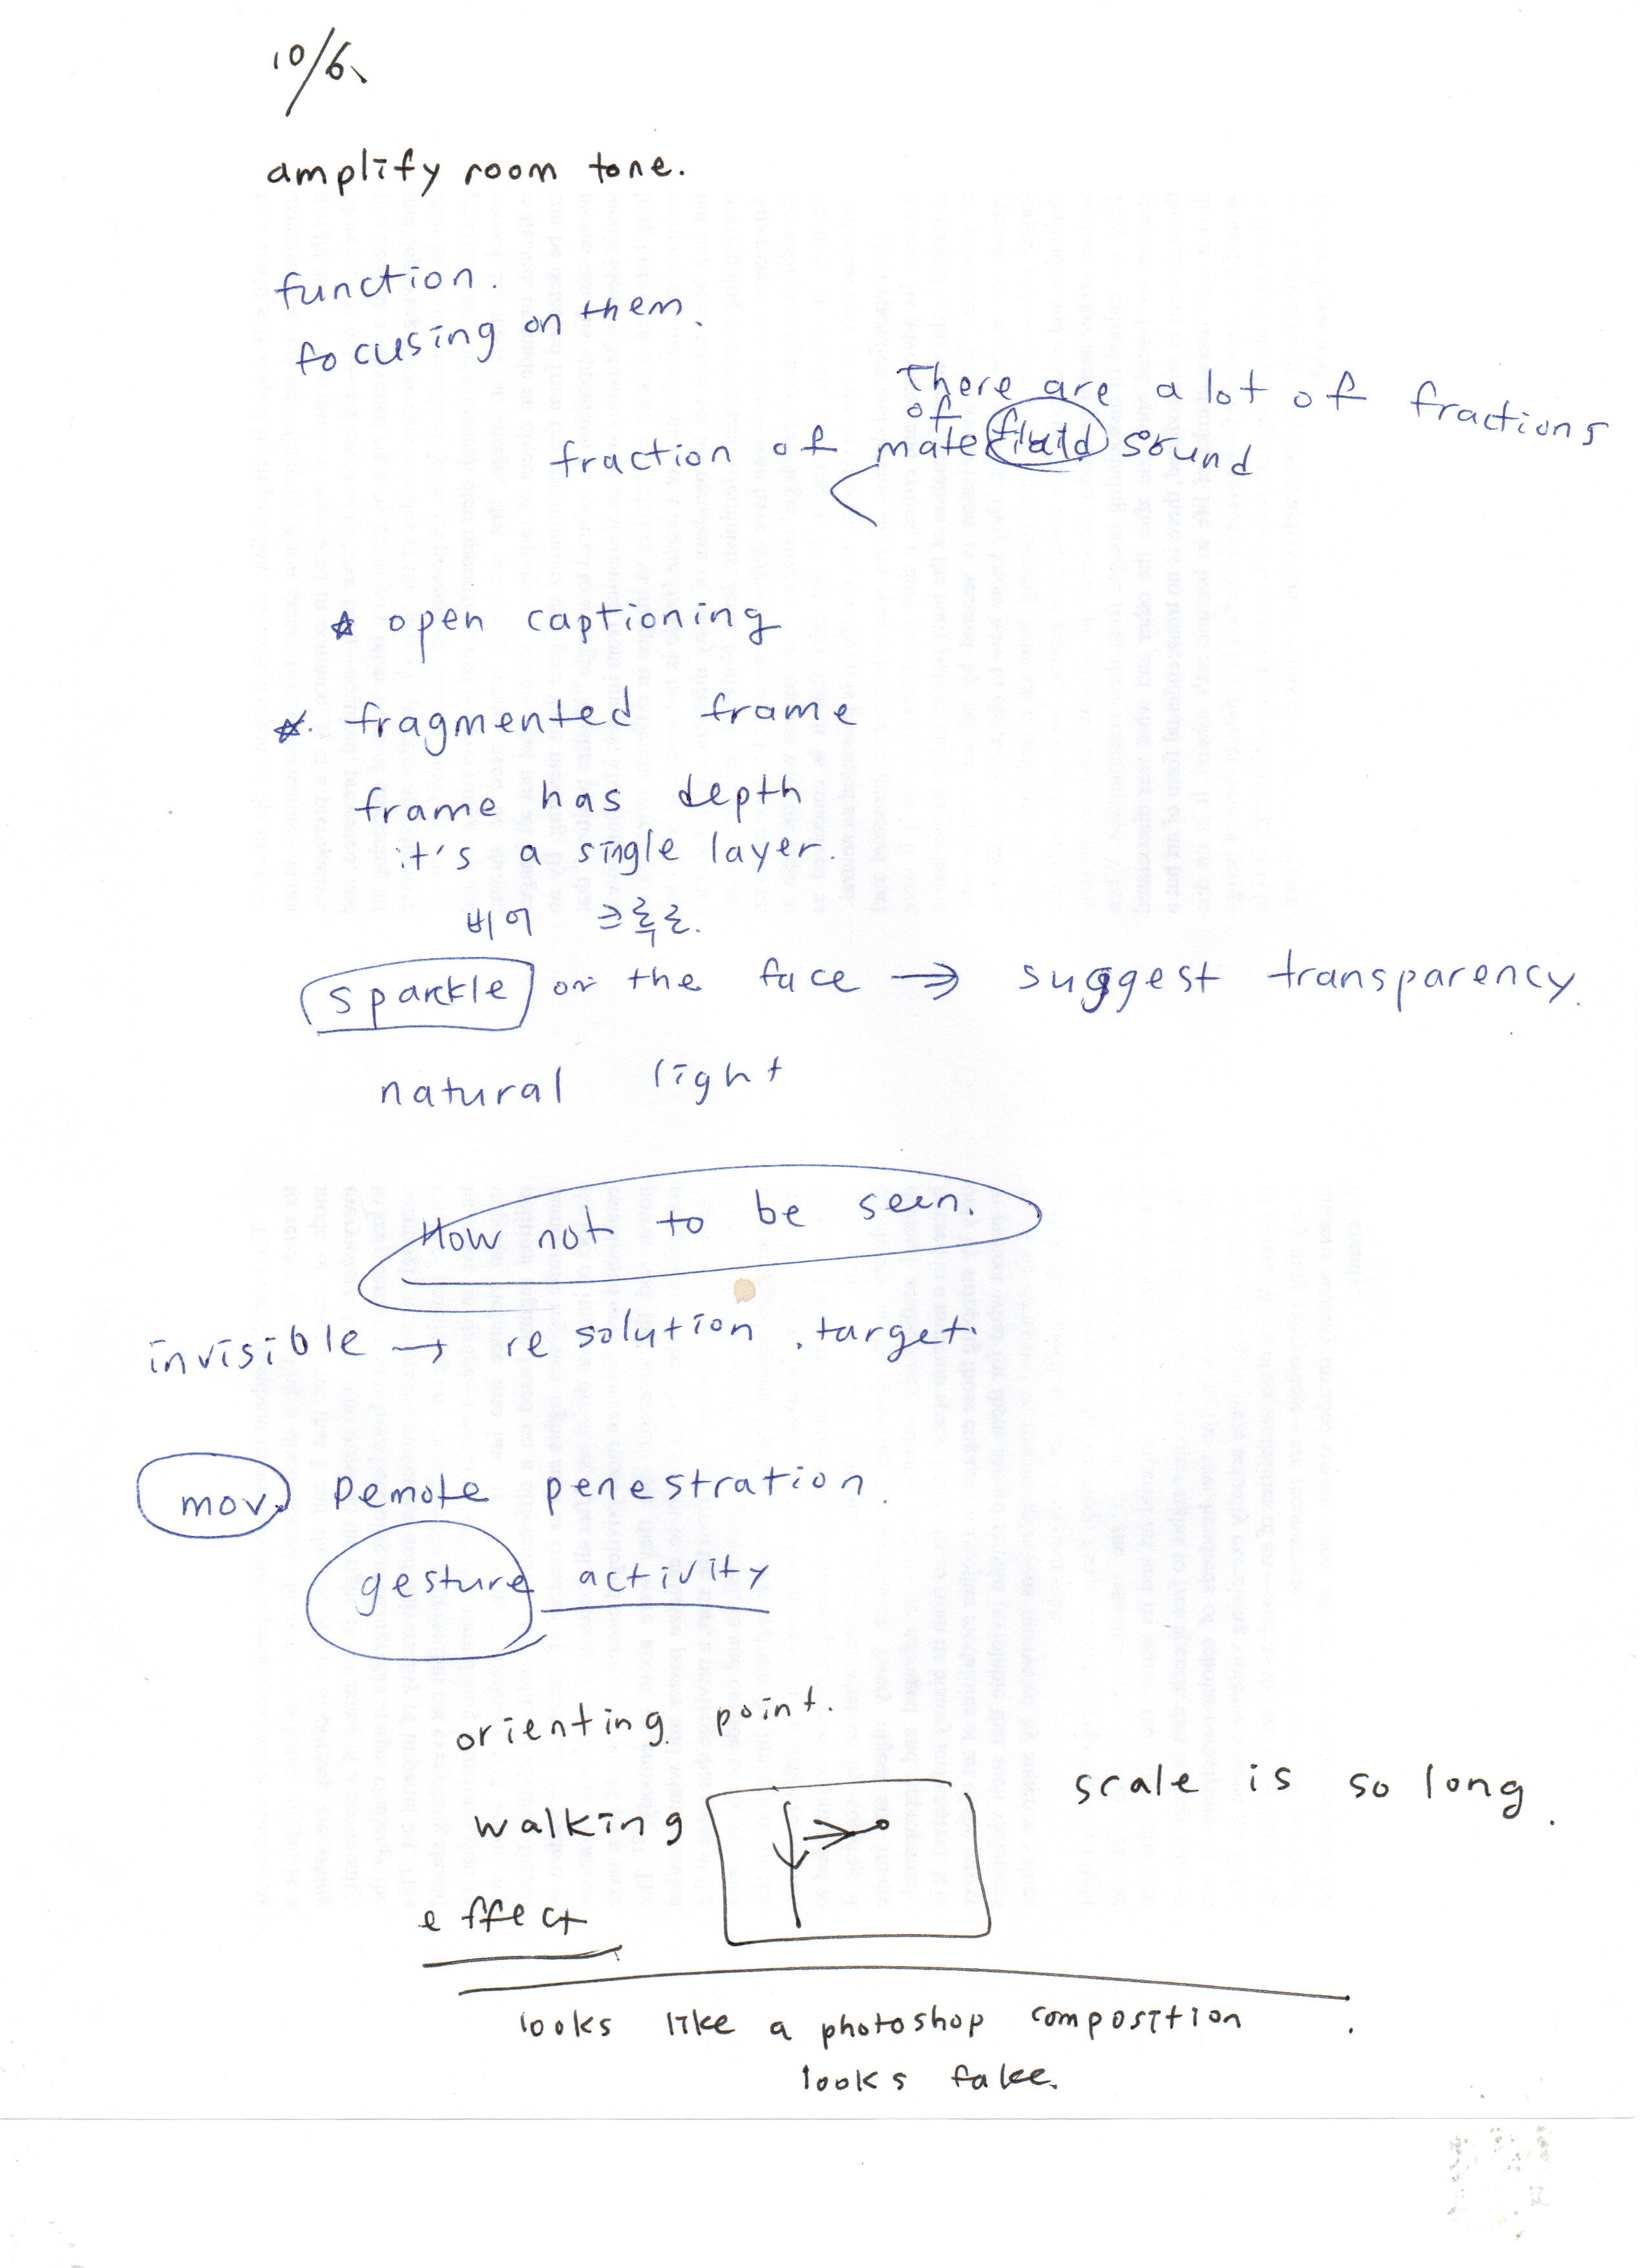 10/6
amplify room tone.
function.
focusing on them.
There are a lot of fractions
of
fraction of mate fluid sound
open captioning
fragmented frame
frame has depth
it's a single layer.
비어 크루르.
sparkle on the face → suggest transparency.
natural light
How not to be seen.
invisible → resolution . target.
mov. Pemote penestration.
gesture activity
orienting point.
walking
scale is so long.
effect
looks like a photoshop composition.
looks fake.